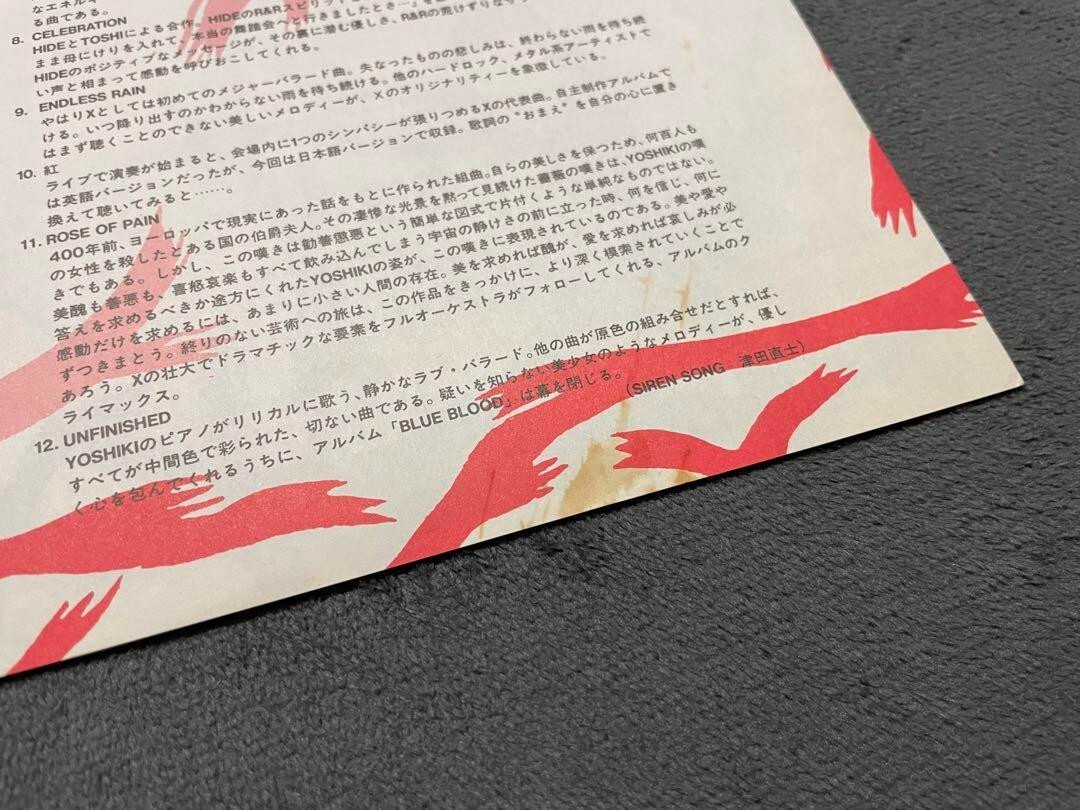 なエネルギ
る曲である。
8. CELEBRATION
HIDEとTOSHIによる合作。HIDEのR&Rスピリット
まま母にけりを入れて、本当の舞踏会へと行きましたとさ…」を
HIDEのポジティブなメッセージが、その裏に潜む優しさ、R&Rの荒けずりな
い声と相まって感動を呼びおこしてくれる。
9. ENDLESS RAIN
やはりXとしては初めてのメジャーバラード曲。失なったものの悲しみは、終わらない雨を待ち続
ける。いつ降り出すのかわからない雨を待ち続ける。他のハードロック、メタル系アーティストで
はまず聴くことのできない美しいメロディーが、Xのオリジナリティーを象徴している。
10. 紅
ライブで演奏が始まると、会場内に1つのシンパシーが張りつめるXの代表曲。自主制作アルバムで
は英語バージョンだったが、今回は日本語バージョンで収録。歌詞の“おまえ”を自分の心に置き
換えて聴いてみると……。
11. ROSE OF PAIN
400年前、ヨーロッパで現実にあった話をもとに作られた組曲。自らの美しさを保つため、何百人も
の女性を殺したとある国の伯爵夫人。その凄惨な光景を黙って見続けた薔薇の嘆きは、YOSHIKIの嘆
きでもある。しかし、この嘆きは勧善懲悪という簡単な図式で片付くような単純なものではない。
美醜も善悪も、喜怒哀楽もすべて飲み込んでしまう宇宙の静けさの前に立った時、何を信じ、何に
答えを求めるべきか途方にくれたYOSHIKIの姿が、この嘆きに表現されているのである。美や愛や
感動だけを求めるには、あまりに小さい人間の存在。美を求めれば醜が、愛を求めれば哀しみが必
ずつきまとう。終りのない芸術への旅は、この作品をきっかけに、より深く模索されていくことで
あろう。Xの壮大でドラマチックな要素をフルオーケストラがフォローしてくれる、アルバムのク
ライマックス。
12. UNFINISHED
YOSHIKIのピアノがリリカルに歌う、静かなラブ・バラード。他の曲が原色の組み合せだとすれば、
すべてが中間色で彩られた、切ない曲である。疑いを知らない美少女のようなメロディーが、優し
く心を包んでくれるうちに、アルバム「BLUE BLOOD」は幕を閉じる。
(SIREN SONG 津田直士)